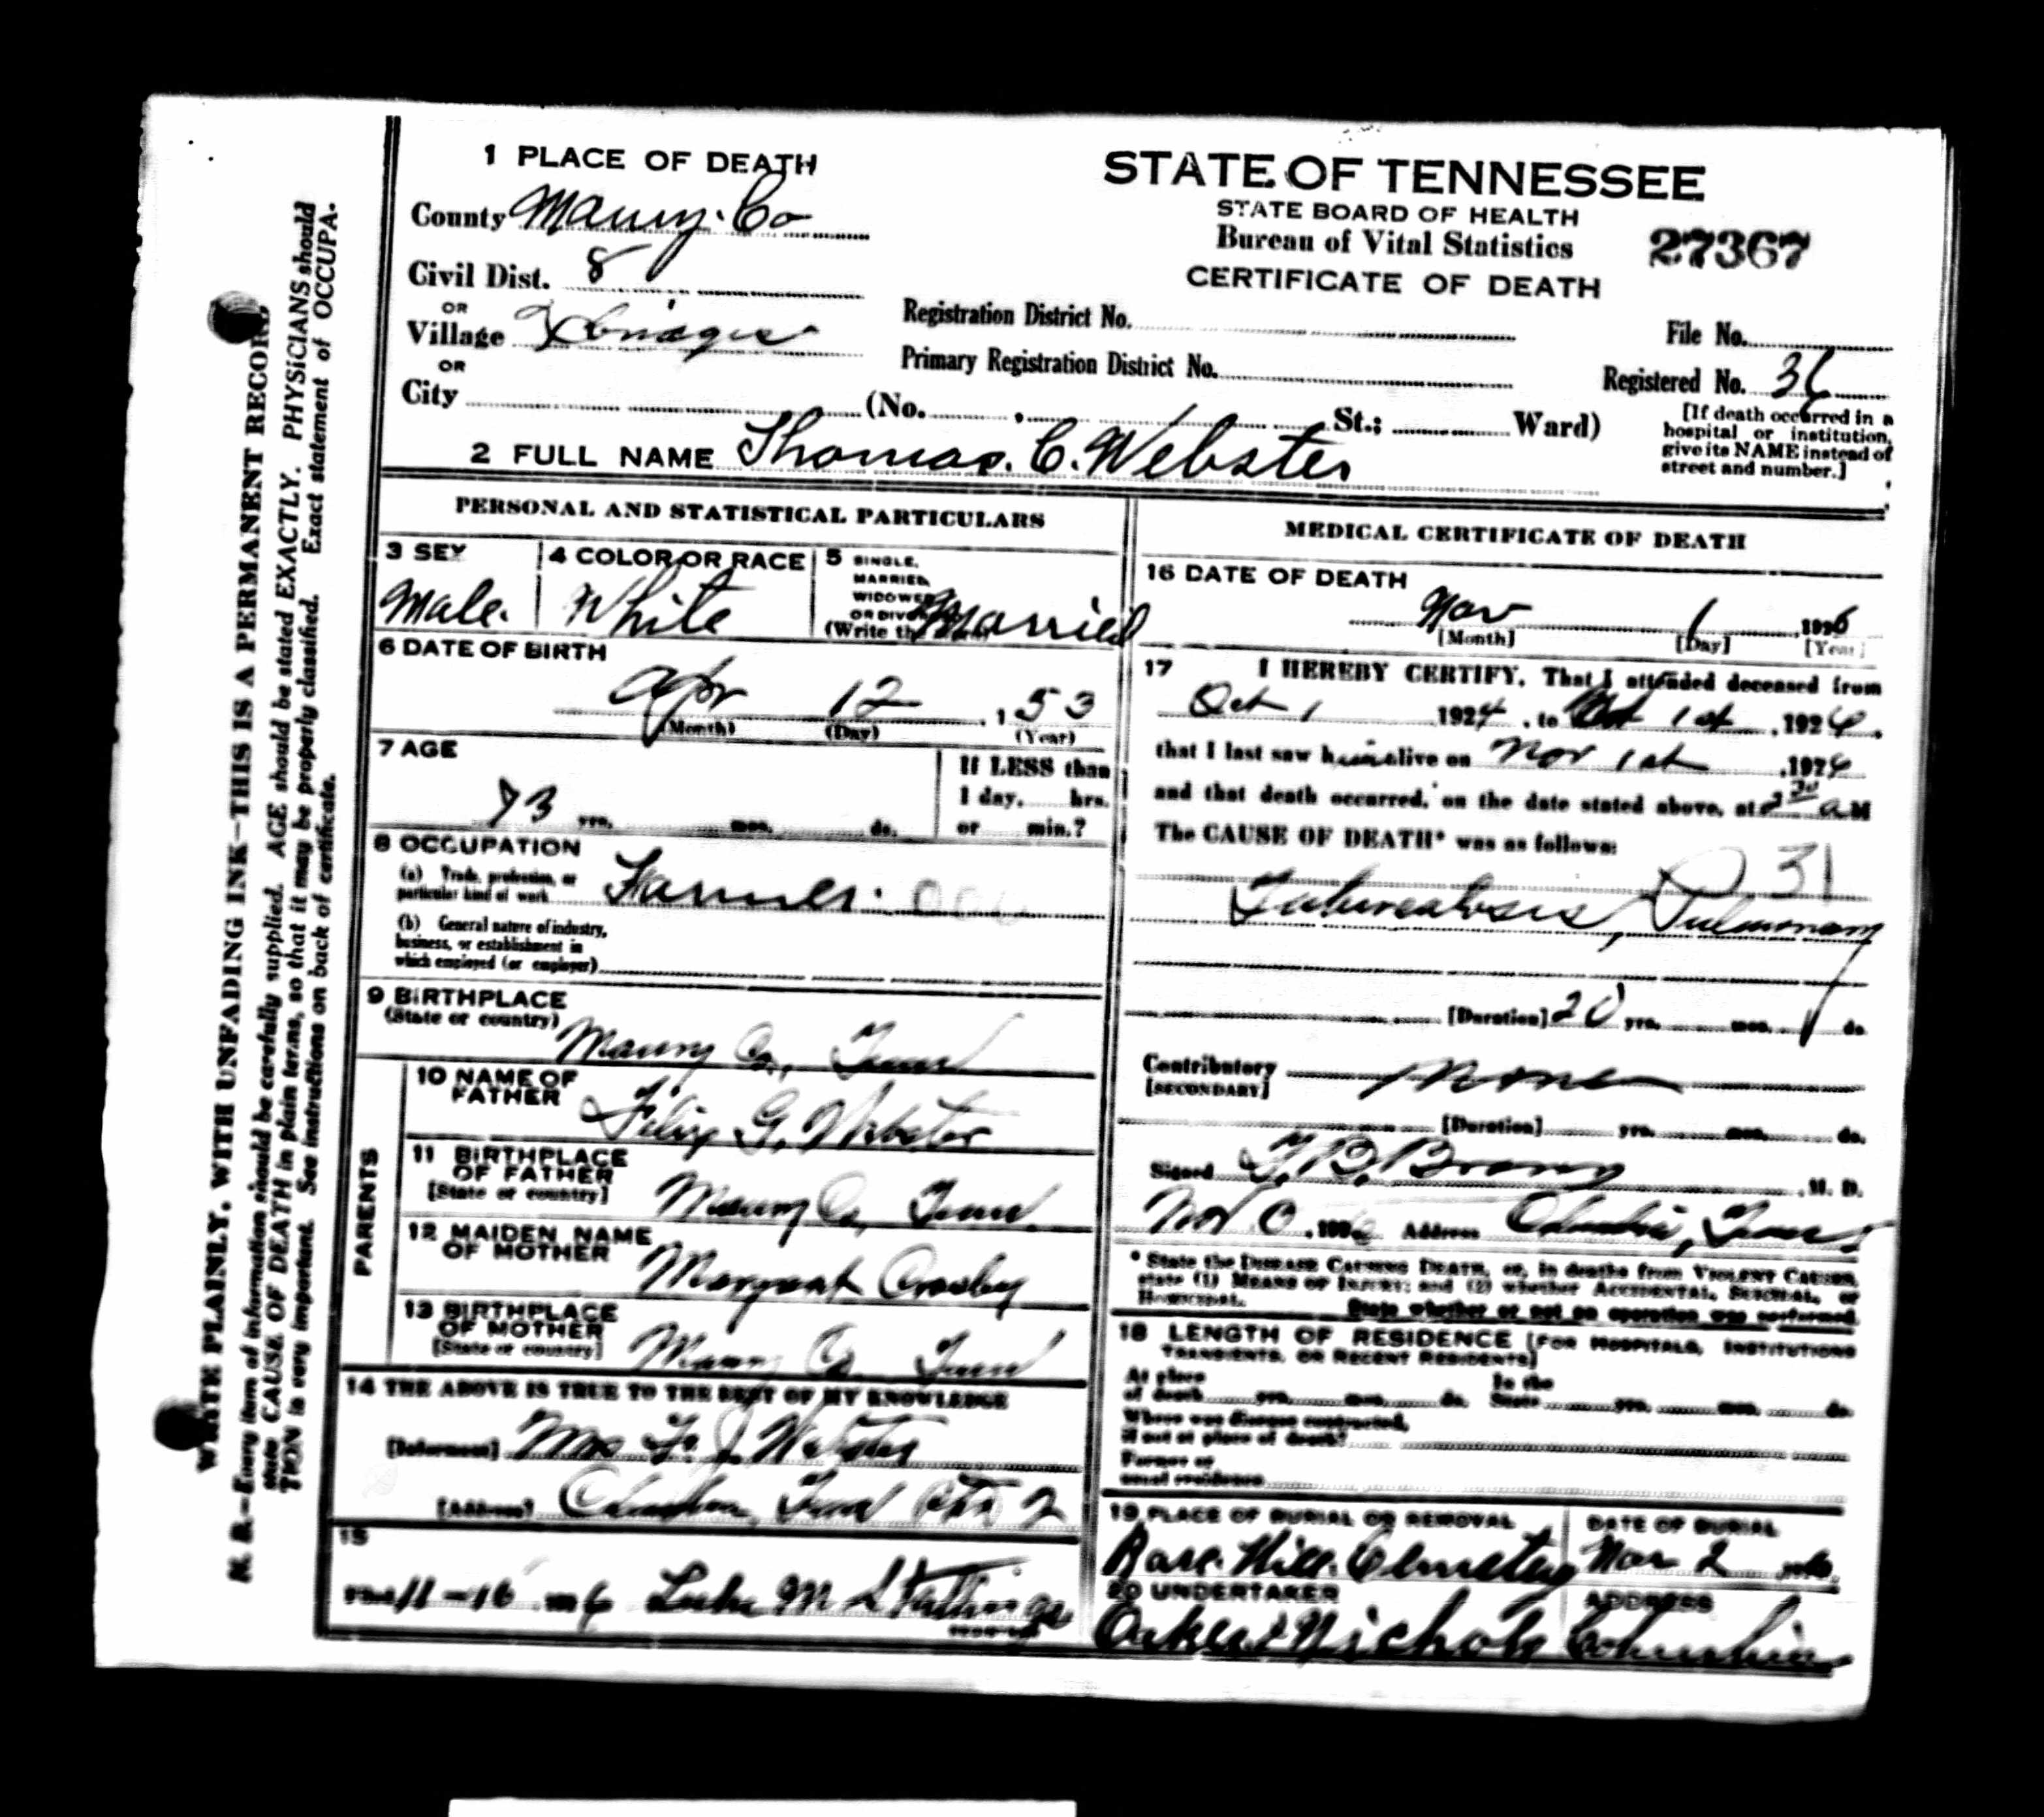 1 PLACE OF DEATH
County Maury. Co
Civil Dist. 8
OR
Village
OR
City (No. , St.; Ward)
STATE OF TENNESSEE
STATE BOARD OF HEALTH
Bureau of Vital Statistics
CERTIFICATE OF DEATH
27367
Registration District No.
File No.
Primary Registration District No.
Registered No. 36
[If death occurred in a
hospital or institution,
give its NAME instead of
street and number.]
2 FULL NAME Thomas. C. Webster
PERSONAL AND STATISTICAL PARTICULARS
3 SEX
Male.
4 COLOR OR RACE
White
5 SINGLE,
MARRIED
WIDOWED
OR DIVO
(Write th
Married
6 DATE OF BIRTH
Apr 12, 1 53
(Month) (Day) (Year)
7 AGE
73 yrs. mos. ds.
If LESS than
1 day, hrs.
or min.?
8 OCCUPATION
(a) Trade, profession, or
particular kind of work Farmer.
(b) General nature of industry,
business, or establishment in
which employed (or employer)
9 BIRTHPLACE
(State or country)
Maury Co., Tenn
PARENTS
10 NAME OF
FATHER
G. Webster
11 BIRTHPLACE
OF FATHER
[State or country]
Maury Co, Tenn.
12 MAIDEN NAME
OF MOTHER
Margaret Crosby
13 BIRTHPLACE
OF MOTHER
[State or country]
Maury Co. Tenn
14 THE ABOVE IS TRUE TO THE BEST OF MY KNOWLEDGE
[Informant] Mrs J. Webster
[Address] Columbia, Tenn 2
15
Filed 11-16 1926
MEDICAL CERTIFICATE OF DEATH
16 DATE OF DEATH
Nov 1, 1926
[Month] [Day] [Year]
17 I HEREBY CERTIFY, That I attended deceased from
Oct 1 1924, to 1st, 1926.
that I last saw him alive on Nov 1st, 1926
and that death occurred, on the date stated above, at 2 30 a M
The CAUSE OF DEATH* was as follows:
31
Tuberculosis, Pulmonary
[Duration] 20 yrs. mos. ds.
Contributory None
[SECONDARY]
[Duration] yrs. mos. ds.
Signed , M. D.
Nov , 192 Address Columbia, Tenn.
* State the DISEASE CAUSING DEATH, or, in deaths from VIOLENT CAUSES,
state (1) MEANS OF INJURY; and (2) whether ACCIDENTAL, SUICIDAL, or
HOMICIDAL. State whether or not an operation was performed.
18 LENGTH OF RESIDENCE [FOR HOSPITALS, INSTITUTIONS
TRANSIENTS, OR RECENT RESIDENTS]
At place
of death yrs. mos. ds.
In the
State yrs. mos. ds.
Where was disease contracted,
if not at place of death?
Former or
usual residence
19 PLACE OF BURIAL OR REMOVAL
Rose. Hill. Cemetery
DATE OF BURIAL
Nov 2 1926
20 UNDERTAKER
Oakes & Nichols
ADDRESS
Columbia
WRITE PLAINLY, WITH UNFADING INK—THIS IS A PERMANENT RECORD
N. B.—Every item of information should be carefully supplied. AGE should be stated EXACTLY. PHYSICIANS should
state CAUSE OF DEATH in plain terms, so that it may be properly classified. Exact statement of OCCUPA-
TION is very important. See instructions on back of certificate.